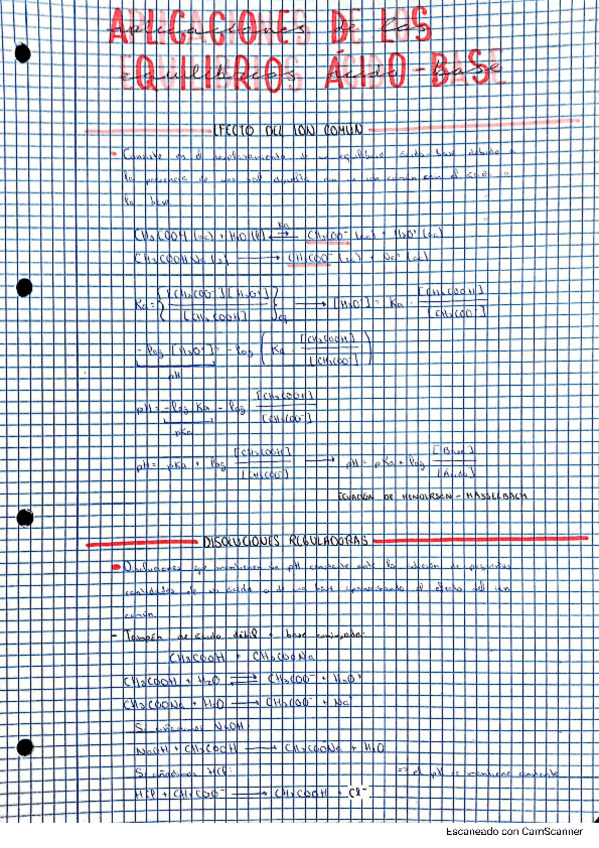 APLICACIONES DE LOS
EQUILIBRIOS ÁCIDO-BASE
EFECTO DEL ION COMÚN
Consiste en el desplazamiento de un equilibrio ácido-base debido a
la presencia de una sal disuelta con un ion común con el ácido o
la base
CH₃COOH (ac) + H₂O (l) ⇌ CH₃COO⁻ (ac) + H₃O⁺ (ac)
Ka
CH₃COONa (s) → CH₃COO⁻ (ac) + Na⁺ (ac)
Ka = { [CH₃COO⁻][H₃O⁺] / [CH₃COOH] }eq → [H₃O⁺] = Ka · [CH₃COOH] / [CH₃COO⁻]
- log [H₃O⁺] = - log ( Ka [CH₃COOH] / [CH₃COO⁻] )
pH
pH = - log Ka - log [CH₃COOH] / [CH₃COO⁻]
pKa
pH = pKa + log [CH₃COOH] / [CH₃COO⁻] → pH = pKa + log [Base] / [Ácido]
ECUACIÓN DE HENDERSON - HASSELBACH
DISOLUCIONES REGULADORAS
Disoluciones que mantienen un pH constante ante la adición de pequeñas
cantidades de un ácido o de una base aprovechando el efecto del ion
común
- Tampón de ácido débil + base conjugada:
CH₃COOH + CH₃COONa
CH₃COOH + H₂O ⇌ CH₃COO⁻ + H₃O⁺
CH₃COONa + H₂O → CH₃COO⁻ + Na
Si añadimos NaOH:
NaOH + CH₃COOH → CH₃COONa + H₂O
Si añadimos HCl: ⇒ el pH se mantiene constante
HCl + CH₃COO⁻ → CH₃COOH + Cl⁻
Escaneado con CamScanner